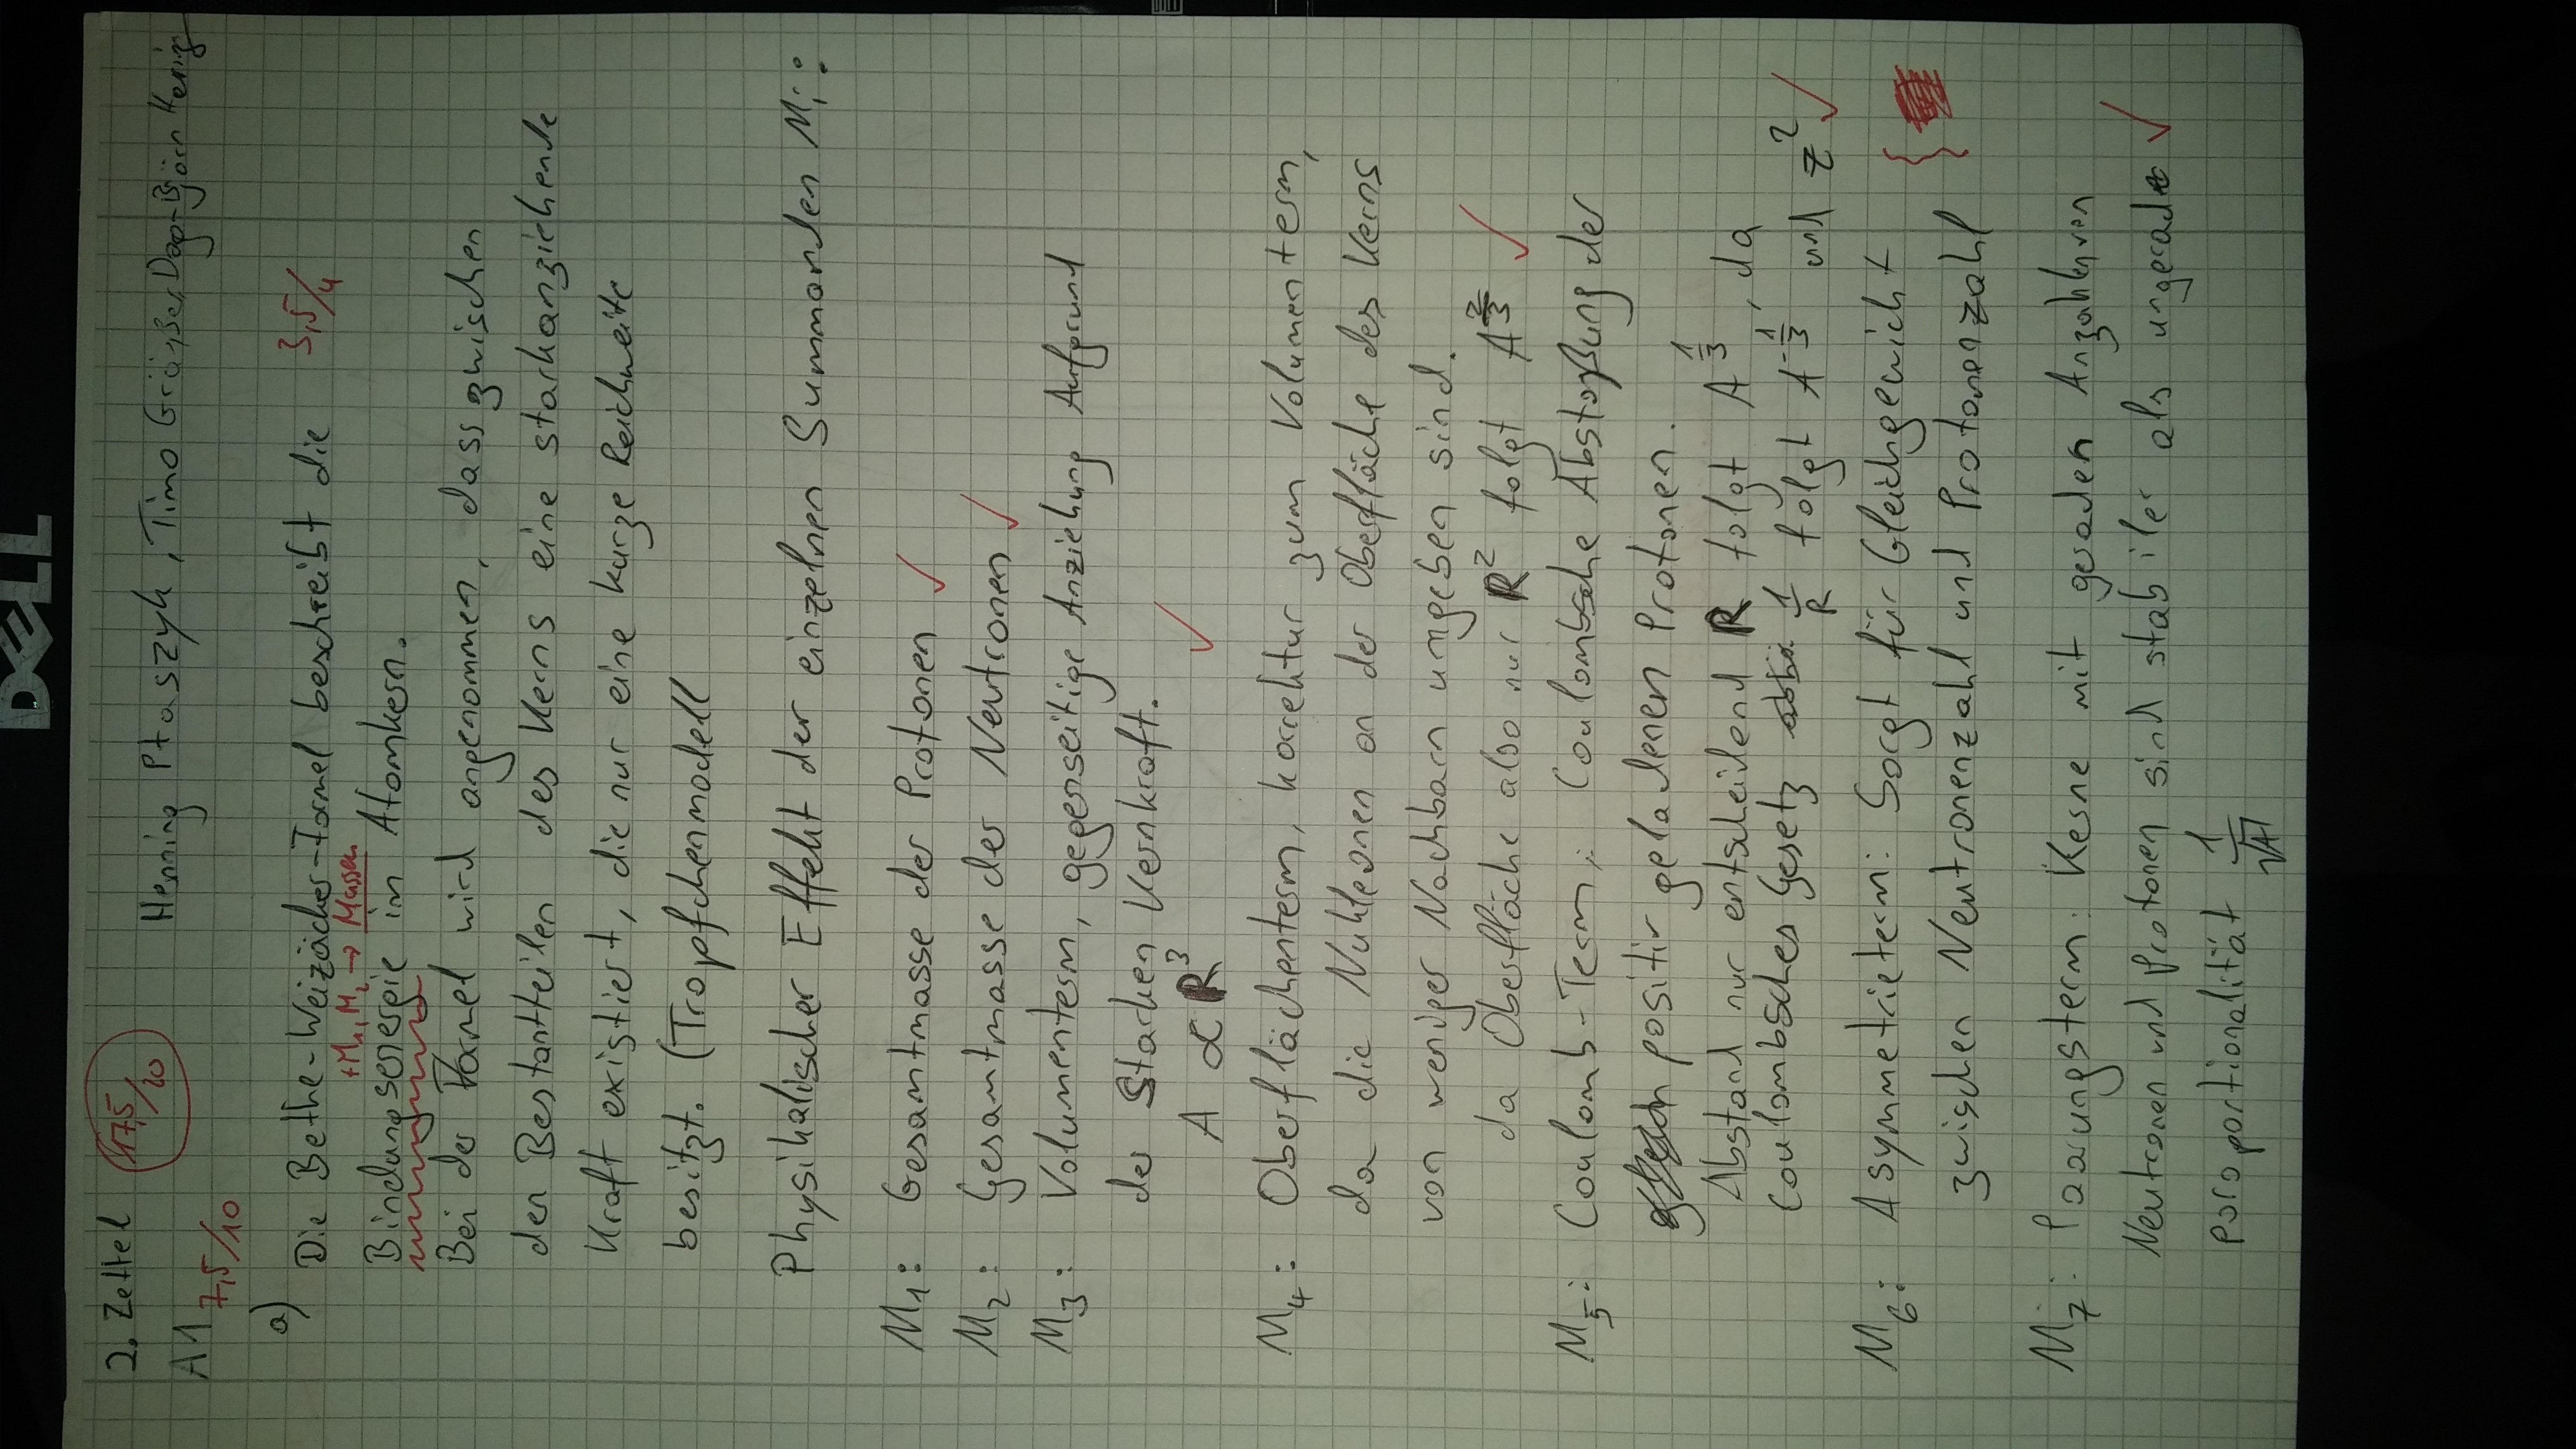 DELL
2. Zettel 17,5/20
Henning Ptaszyk, Timo Gräßer, Dag-Björn Hering
A1 7,5/10
a)
Die Bethe-Weizäcker-Formel beschreibt die 3,5/4
+M₁, M₂ → Massen
Bindungsenergie im Atomkern.
Bei der Formel wird angenommen, dass zwischen
den Bestantteilen des Kerns eine starkanziehende
Kraft existiert, die nur eine kurze Reichweite
besitzt. (Tropfchenmodell
Physikalischer Effekt der einzelnen Summanden Mi:
M₁: Gesamtmasse der Protonen ✓
M₂: Gesamtmasse der Neutronen ✓
M₃: Volumenterm, gegenseitige Anziehung Aufgrund
der Starken Kernkraft.
A ∝ R³ ✓
M₄: Oberflächenterm, korrektur zum Volumenterm,
da die Nukleonen an der Oberfläche des Kerns
von weniger Nachbarn umgeben sind.
da Oberfläche also nur R² folgt A^(2/3) ✓
M₅: Coulomb-Term: Coulombsche Abstoßung der
positiv geladenen Protonen.
Abstand nur entscheidend R folgt A^(1/3), da
Coulombsches Gesetz 1/R folgt A^(-1/3) und z² ✓
M₆: Asymmetrieterm: Sorgt für Gleichgewicht
zwischen Neutronenzahl und Protonenzahl
M₇: Paarungsterm: Kerne mit geraden Anzahlen von
Neutronen und Protonen sind stabiler als ungerade ✓
poroportionalität 1/√A